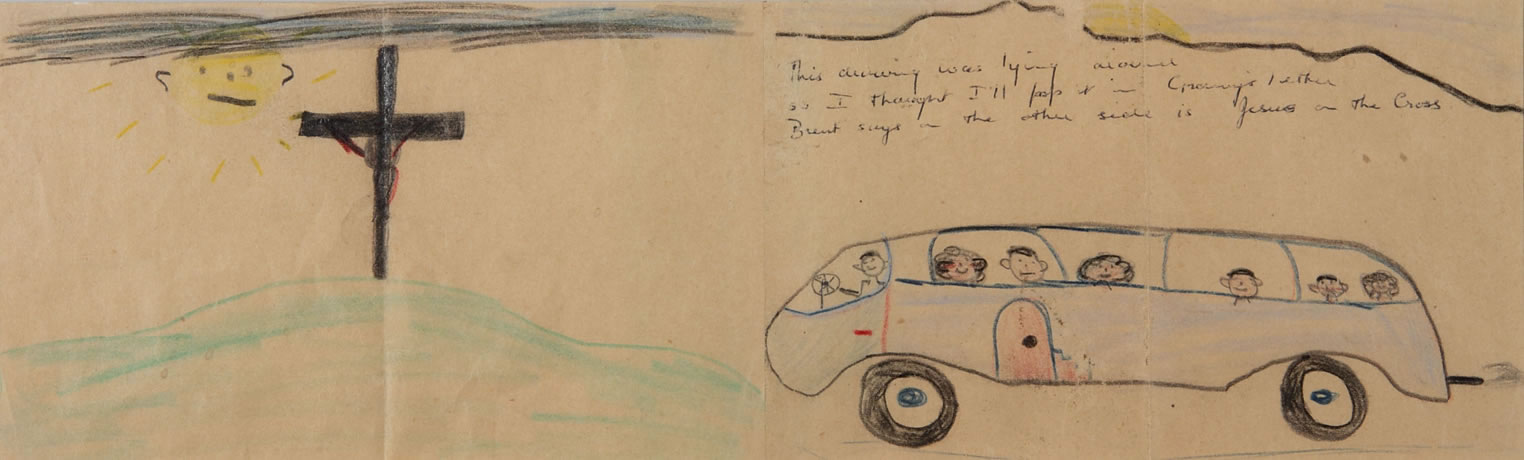 This drawing was lying around
so I thought I'll pop it in Granny's letter
Brent says on the other side is Jesus on the Cross